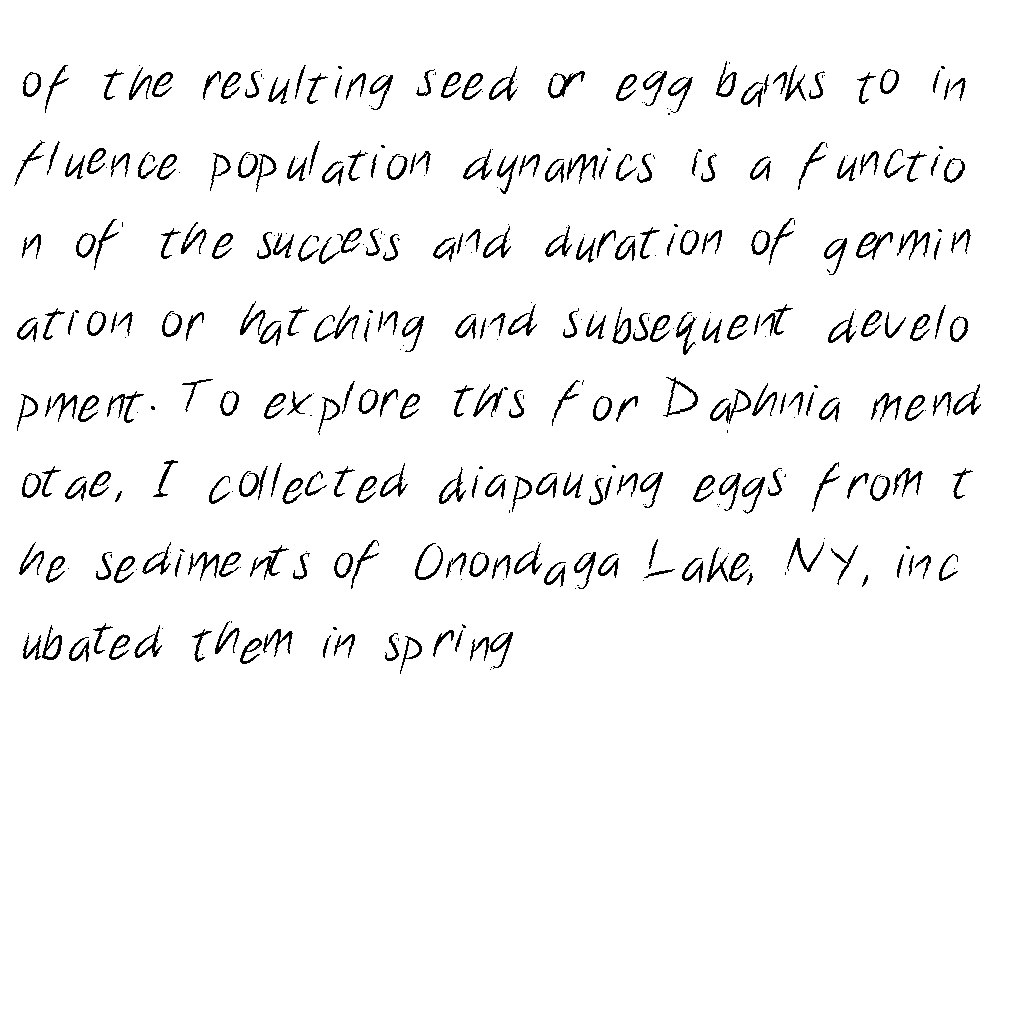 of the resulting seed or egg banks to in
fluence population dynamics is a functio
n of the success and duration of germin
ation or hatching and subsequent develo
pment. To explore this for Daphnia mend
otae, I collected diapausing eggs from t
he sediments of Onondaga Lake, NY, inc
ubated them in spring